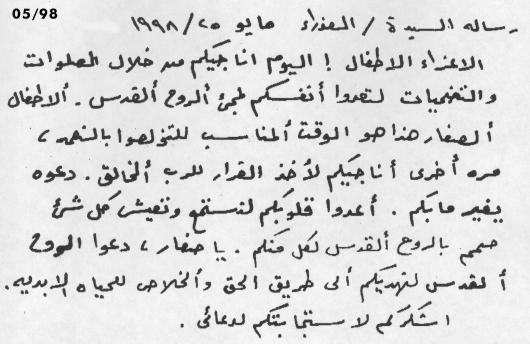 05/98
رساله السيدة / العذراء مايو ٢٥/١٩٩٨
الاعزاء الاطفال ! اليوم اناجيكم من خلال الصلوات
والتضحيات لتعدوا أنفسكم لمجئ ألروح ألقدس. ألاطفال
ألصغار هذا هو الوقت ألمناسب للتخلصوا بالتعمد،
مره أخرى أناجيكم لأخذ القرار للرب ألخالق. دعوه
يغير مابكم. أعدوا قلوبكم لتستمع وتعيش كل شئ
صمم بالروح ألقدس لكل منكم. يا صغار، دعوا الروح
ألقدس لتهديكم ألى طريق الحق وألخلاص للحياه الابديه.
اشكركم لاستجابتكم لدعائى.